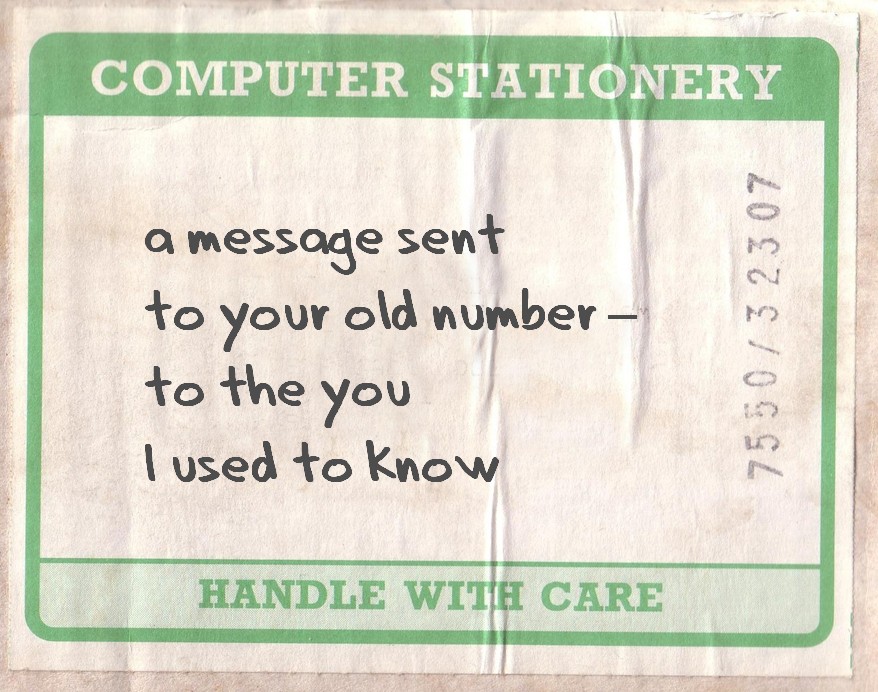 COMPUTER STATIONERY
a message sent
to your old number –
to the you
I used to know
7550/32307
HANDLE WITH CARE